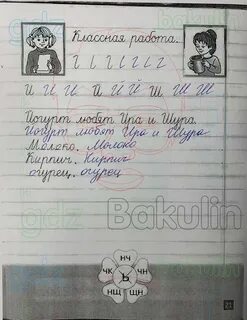 Классная работа.
и и и й й ш ш ш
Йогурт любят Ира и Шура.
Йогурт любят Ира и Шура
Молоко. Молоко
Кирпич. Кирпич
огурец. огурец
gdz Bakulin
нч
чк ь чн
нщ щн
21